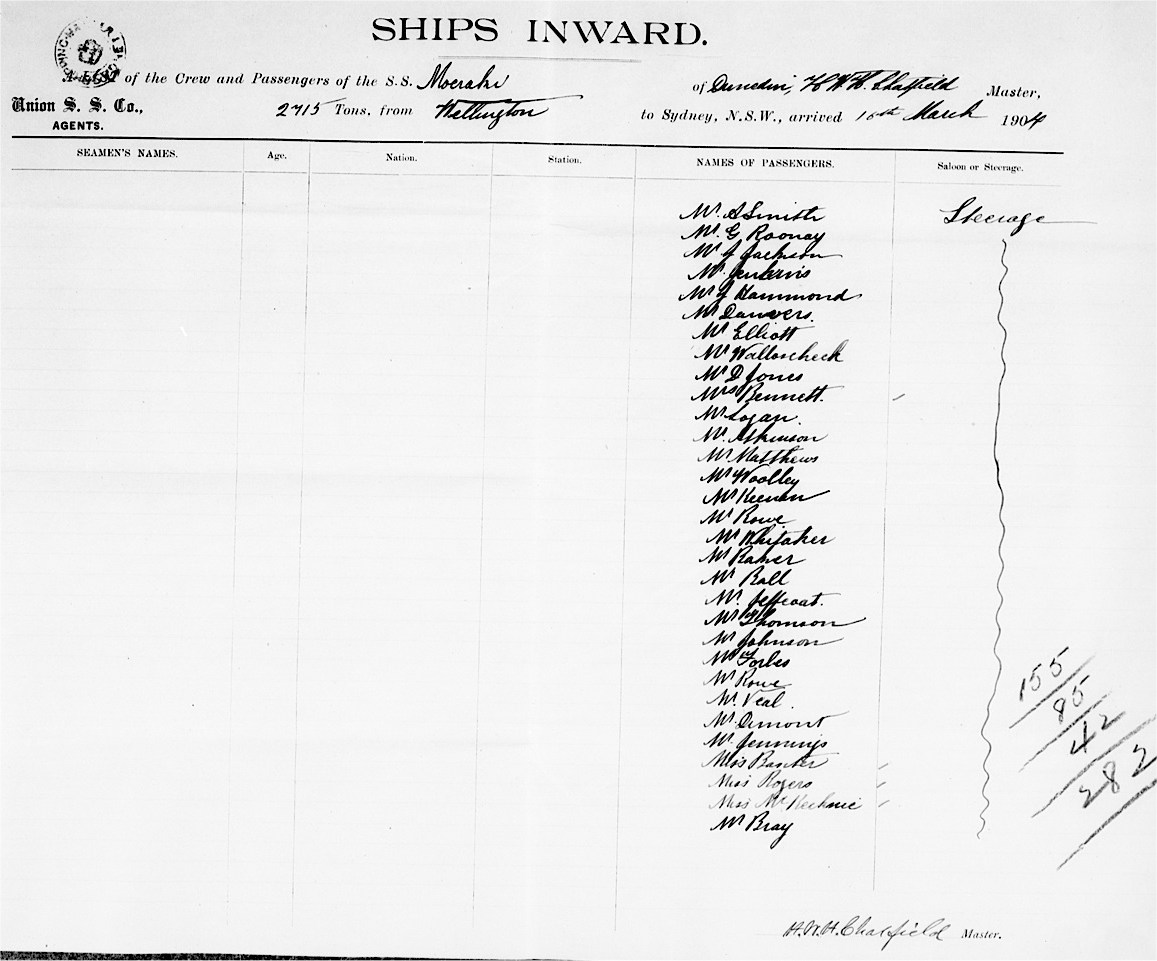 SHIPS INWARD.
of the Crew and Passengers of the S.S. Moeraki of Dunedin, H W H. Chatfield Master,
Union S. S. Co., AGENTS. 2715 Tons, from Wellington to Sydney, N.S.W., arrived 16th March 1904
SEAMEN'S NAMES. Age. Nation. Station. NAMES OF PASSENGERS. Saloon or Steerage.
Mr. A Smith Steerage
Mr. G Roonay
Mr J Jackson
Mr. Jenkins
Mr J Hammond
Mr Danvers.
Mr Elliott
Mr Walloscheck
Mr D Jones
Mrs Bennett.
Mr Logan.
Mr. Atkinson
Mr Matthews
Mr Woolley
Mr Keenan
Mr Rowe
Mr Whitaker
Mr
Mr Ball
Mr. Jeffcoat.
Mr Thomson
Mr Johnson
Mr Forbes
Mr Rowe
Mr. Veal.
Mr. Dimont
Mr. Jennings
Miss Baxter
Miss Rogers
Miss McKechnie
Mr Bray
155
85
42
282
H.W.H. Chatfield Master.